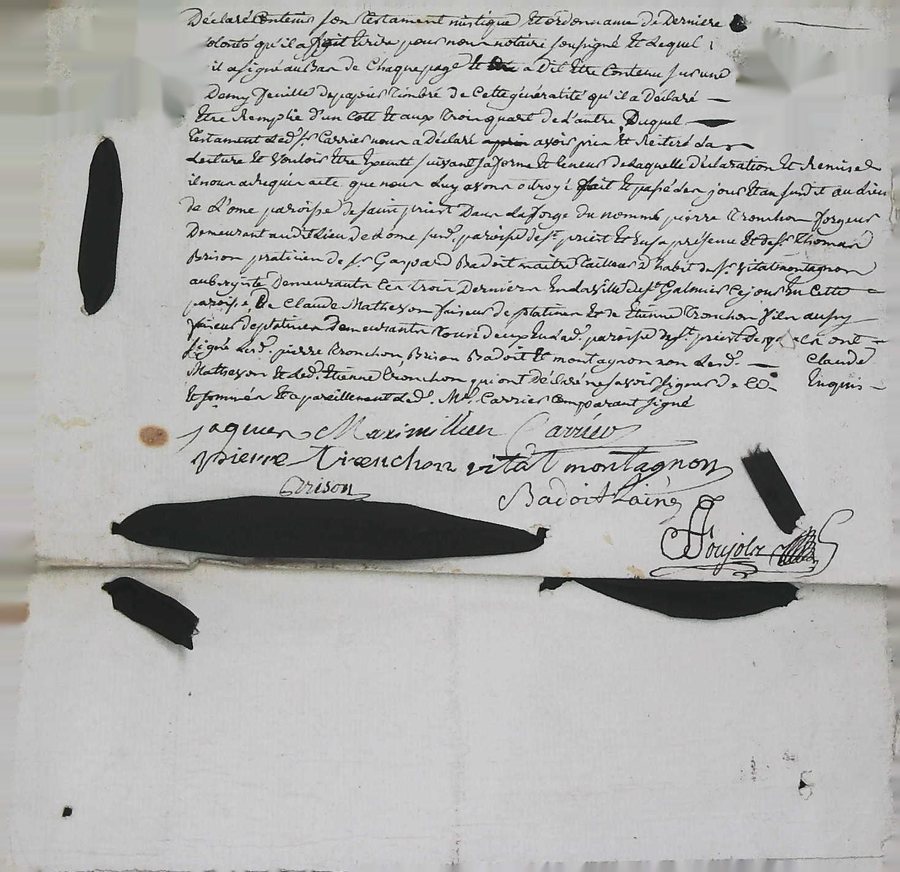 Déclaré Contenir son testament mistique et ordonnance de Derniere
volonté qu'il a fait Ecrire par nous notaire soussigné et Lequel
il a signé au Bas de Chaque page et a Dit Etre Contenu sur une
Demy feuille de papier Timbré de Cette généralité qu'il a Déclaré
Etre Remplie d'un Coté et aux Trois quart de L'autre, Duquel
Testament Led. Sr. Carrier nous a Déclaré avoir pris et Reitéré La
Lecture et Vouloir Etre Executé suivant sa forme et teneur de Laquelle déclaration et Remise
il nous a requis acte que nous Luy avons octroyé fait et passé Les jours et an susdit au Lieu
de L'ome paroisse de saint priest Dans La forge du nommé pierre Tronchon forgeur
Demeurant audit Lieu de L'ome susd. paroisse de St. priest Et En sa présence Et de Sr. Thomas
Brison praticien de Sr. Gaspard Badoit maitre tailleur d'habit de Sr. Vital montagnon
aubergiste Demeurants Les trois Derniers En La ville de St. Galmier Ce jour En Cette
paroisse, De Claude Matheson faiseur de platines et de Etienne Tronchon fils aussy
faiseur de platines Demeurants Tous deux En Lad. paroisse de St. priest ont
signé Led. pierre Tronchon, Brison Badoit Et montagnon non Led. Claude
Matheson et Led. Etienne tronchon qui ont déclaré ne savoir signer de Ce Enquis
Et sommés Et a pareillement Led. Mr. Carrier Comparant signé
jaques Maximillien Carrier
pierre tronchon vital montagnon
Brison
Badoit Lainé